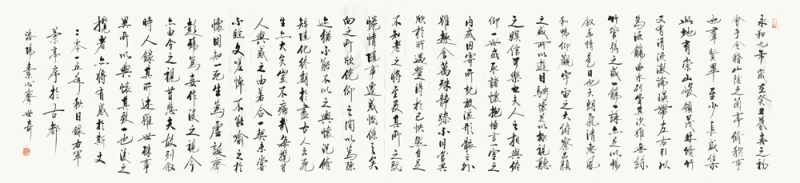 永和九年歲在癸丑暮春之初
會于會稽山陰之蘭亭脩稧事
也群賢畢至少長咸集
此地有崇山峻領茂林脩竹
又有清流激湍暎帶左右引以
為流觴曲水列坐其次雖無絲
竹管弦之盛一觴一詠亦足以暢
敘幽情是日也天朗氣清惠風
和暢仰觀宇宙之大俯察品類
之盛所以遊目騁懷足以極視聽
之娛信可樂也夫人之相與俯
仰一世或取諸懷抱悟言一室之
內或因寄所託放浪形骸之外
雖趣舍萬殊靜躁不同當其
欣於所遇暫得於己快然自足
不知老之將至及其所之既
惓情隨事遷感慨係之矣
向之所欣俛仰之間以為陳
迹猶不能不以之興懷況脩
短隨化終期於盡古人云死
生亦大矣豈不痛哉每攬昔
人興感之由若合一契未嘗
不臨文嗟悼不能喻之於
懷固知一死生為虛誕齊
彭殤為妄作後之視今
亦由今之視昔悲夫故列敘
時人錄其所述雖世殊事
異所以興懷其致一也後之
攬者亦將有感於斯文
二零一五年秋日錄右軍
蘭亭序於古都
洛陽素心齋世奇